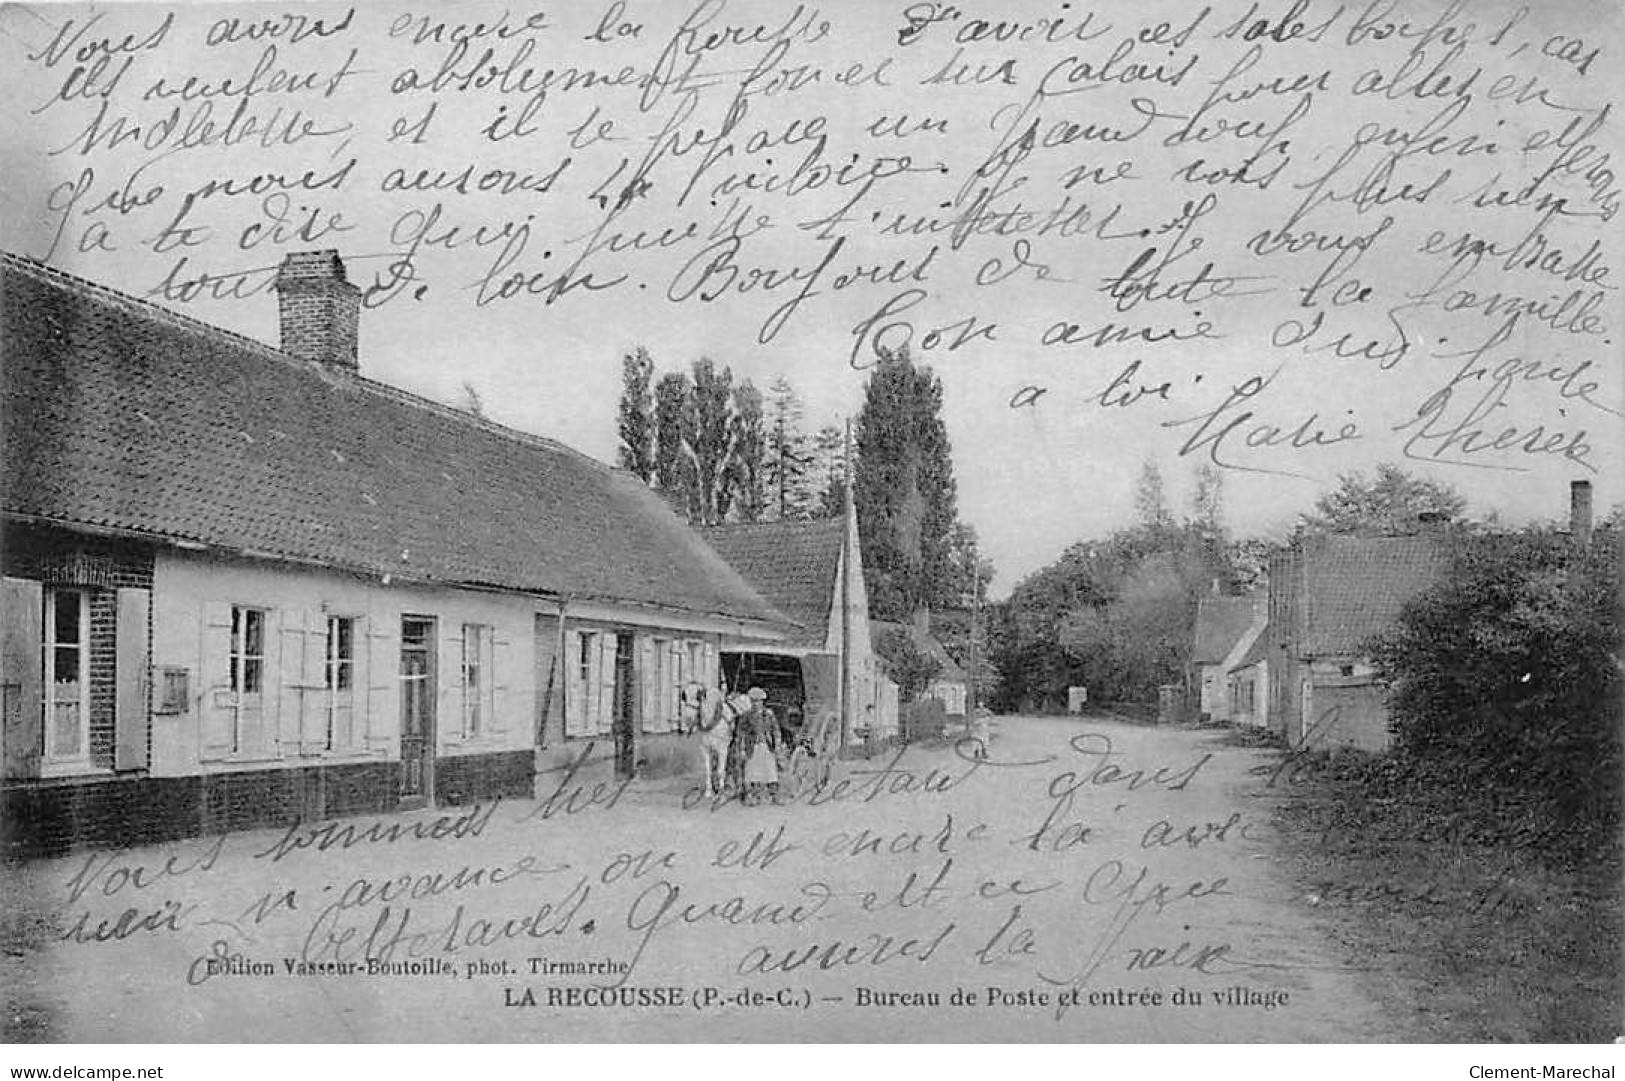 Nous avons encore la frousse d'avoir ces sales boches, car
ils veulent absolument foncer sur Calais pour aller en
Angleterre, et il se prépare un grand coup, enfin espérons
que nous aurons la victoire. Je ne vois plus rien
à te dire qui puisse t'intéresser. Je vous embrasse
tous de loin. Bonjour de toute la famille.
Ton amie qui pense
à toi
Marie Thérèse
Nous sommes très en retard dans la
rien n'avance on est encore là avec
betteraves. Quand est ce que nous
aurons la paix
Edition Vasseur-Boutoille, phot. Tirmarche
LA RECOUSSE (P.-de-C.) — Bureau de Poste et entrée du village
Clement-Marechal
delcampe.net